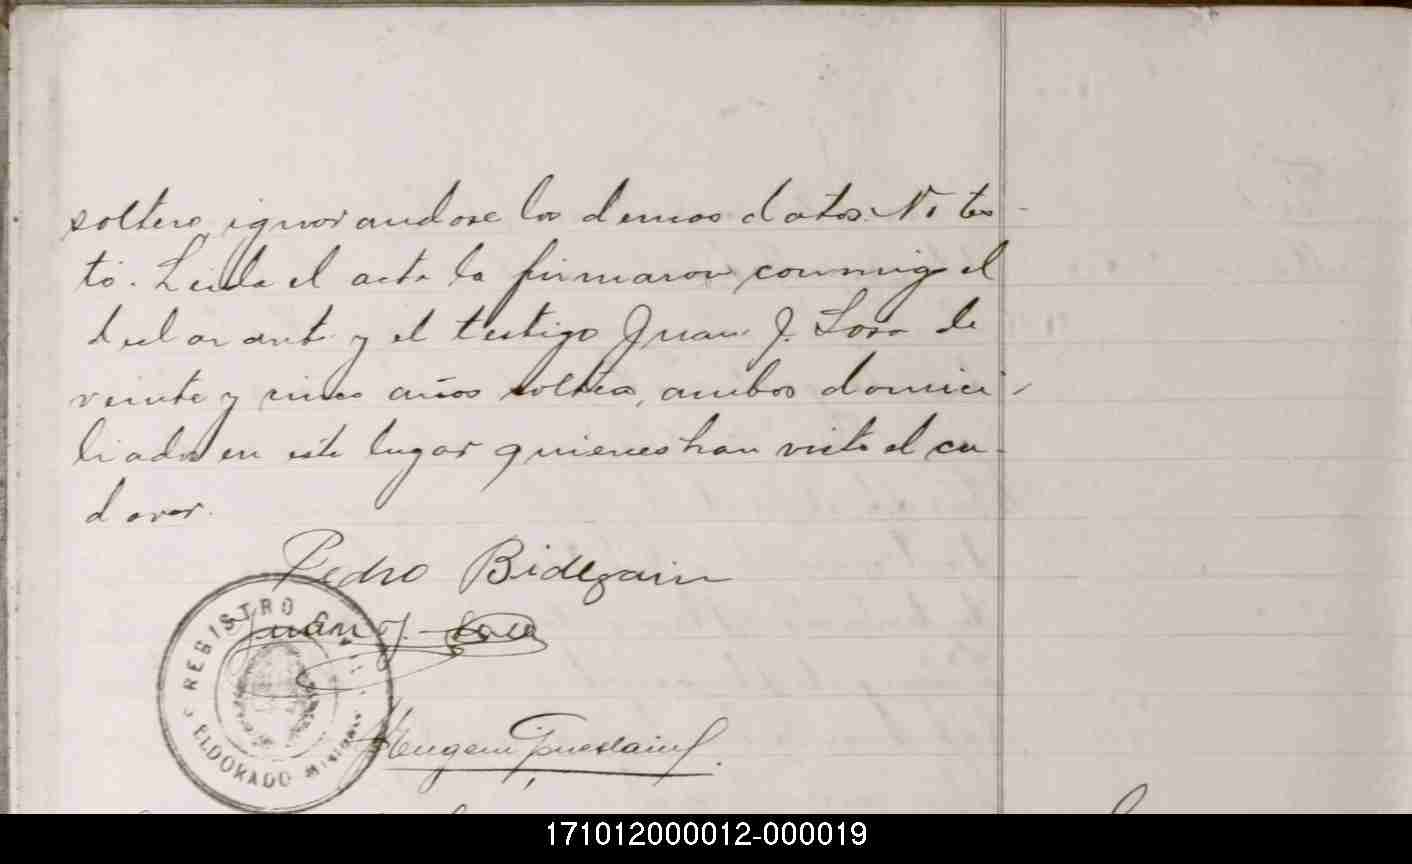 soltero, ignorandose los demas datos. No tes-
tó. Leida el acta la firmaron conmigo el
declarante y el testigo Juan J. Sosa de
veinte y cinco años soltero, ambos domici-
liados en este lugar quienes han visto el ca-
daver.
Pedro Bidegain
Juan J. Sosa
REGISTRO CIVIL
ELDORADO MISIONES
171012000012-000019